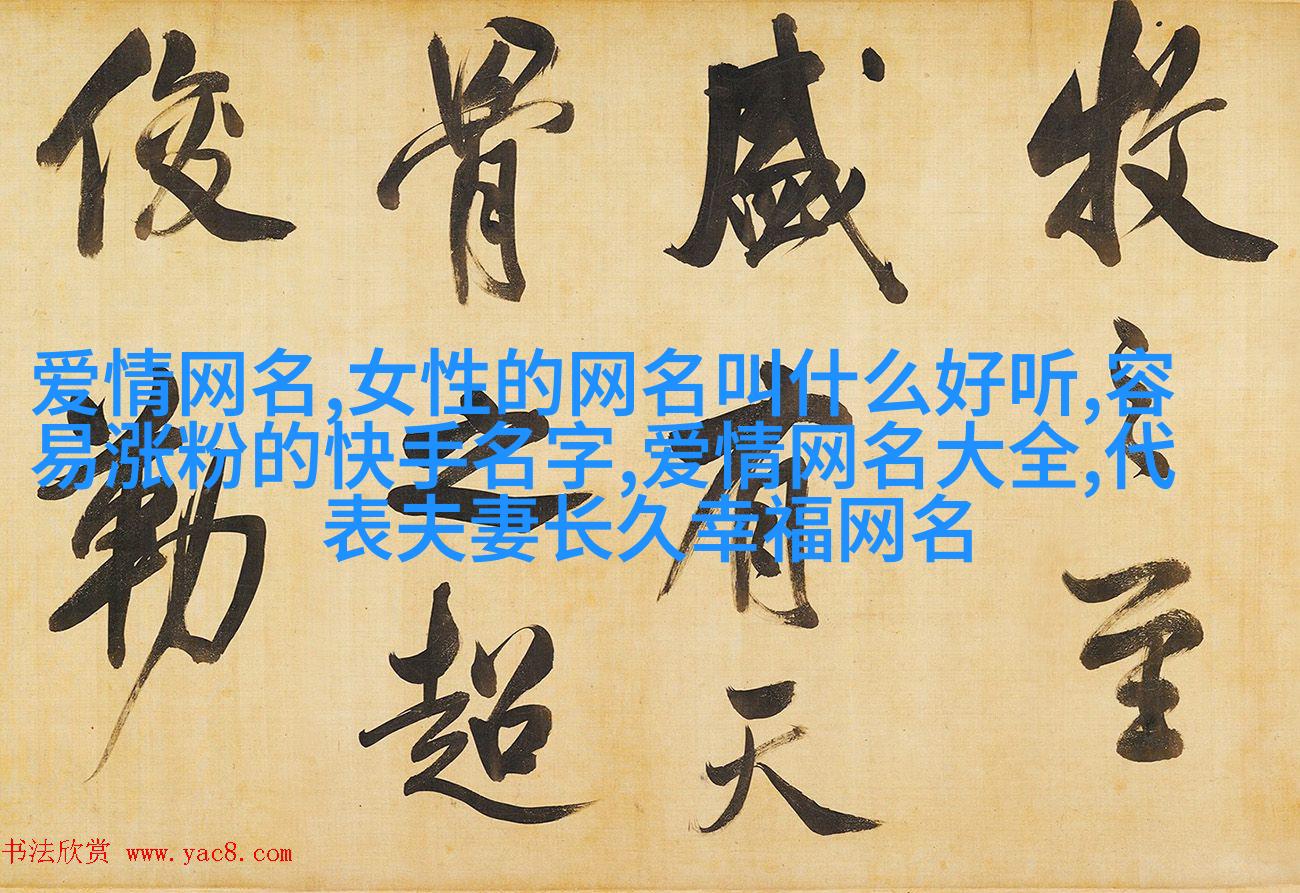 牧至
盛有天
骨之超
俊勒
爱情网名,女性的网名叫什么好听,容
易涨粉的快手名字,爱情网名大全,代
表夫妻长久幸福网名
书法欣赏 www.yac8.com